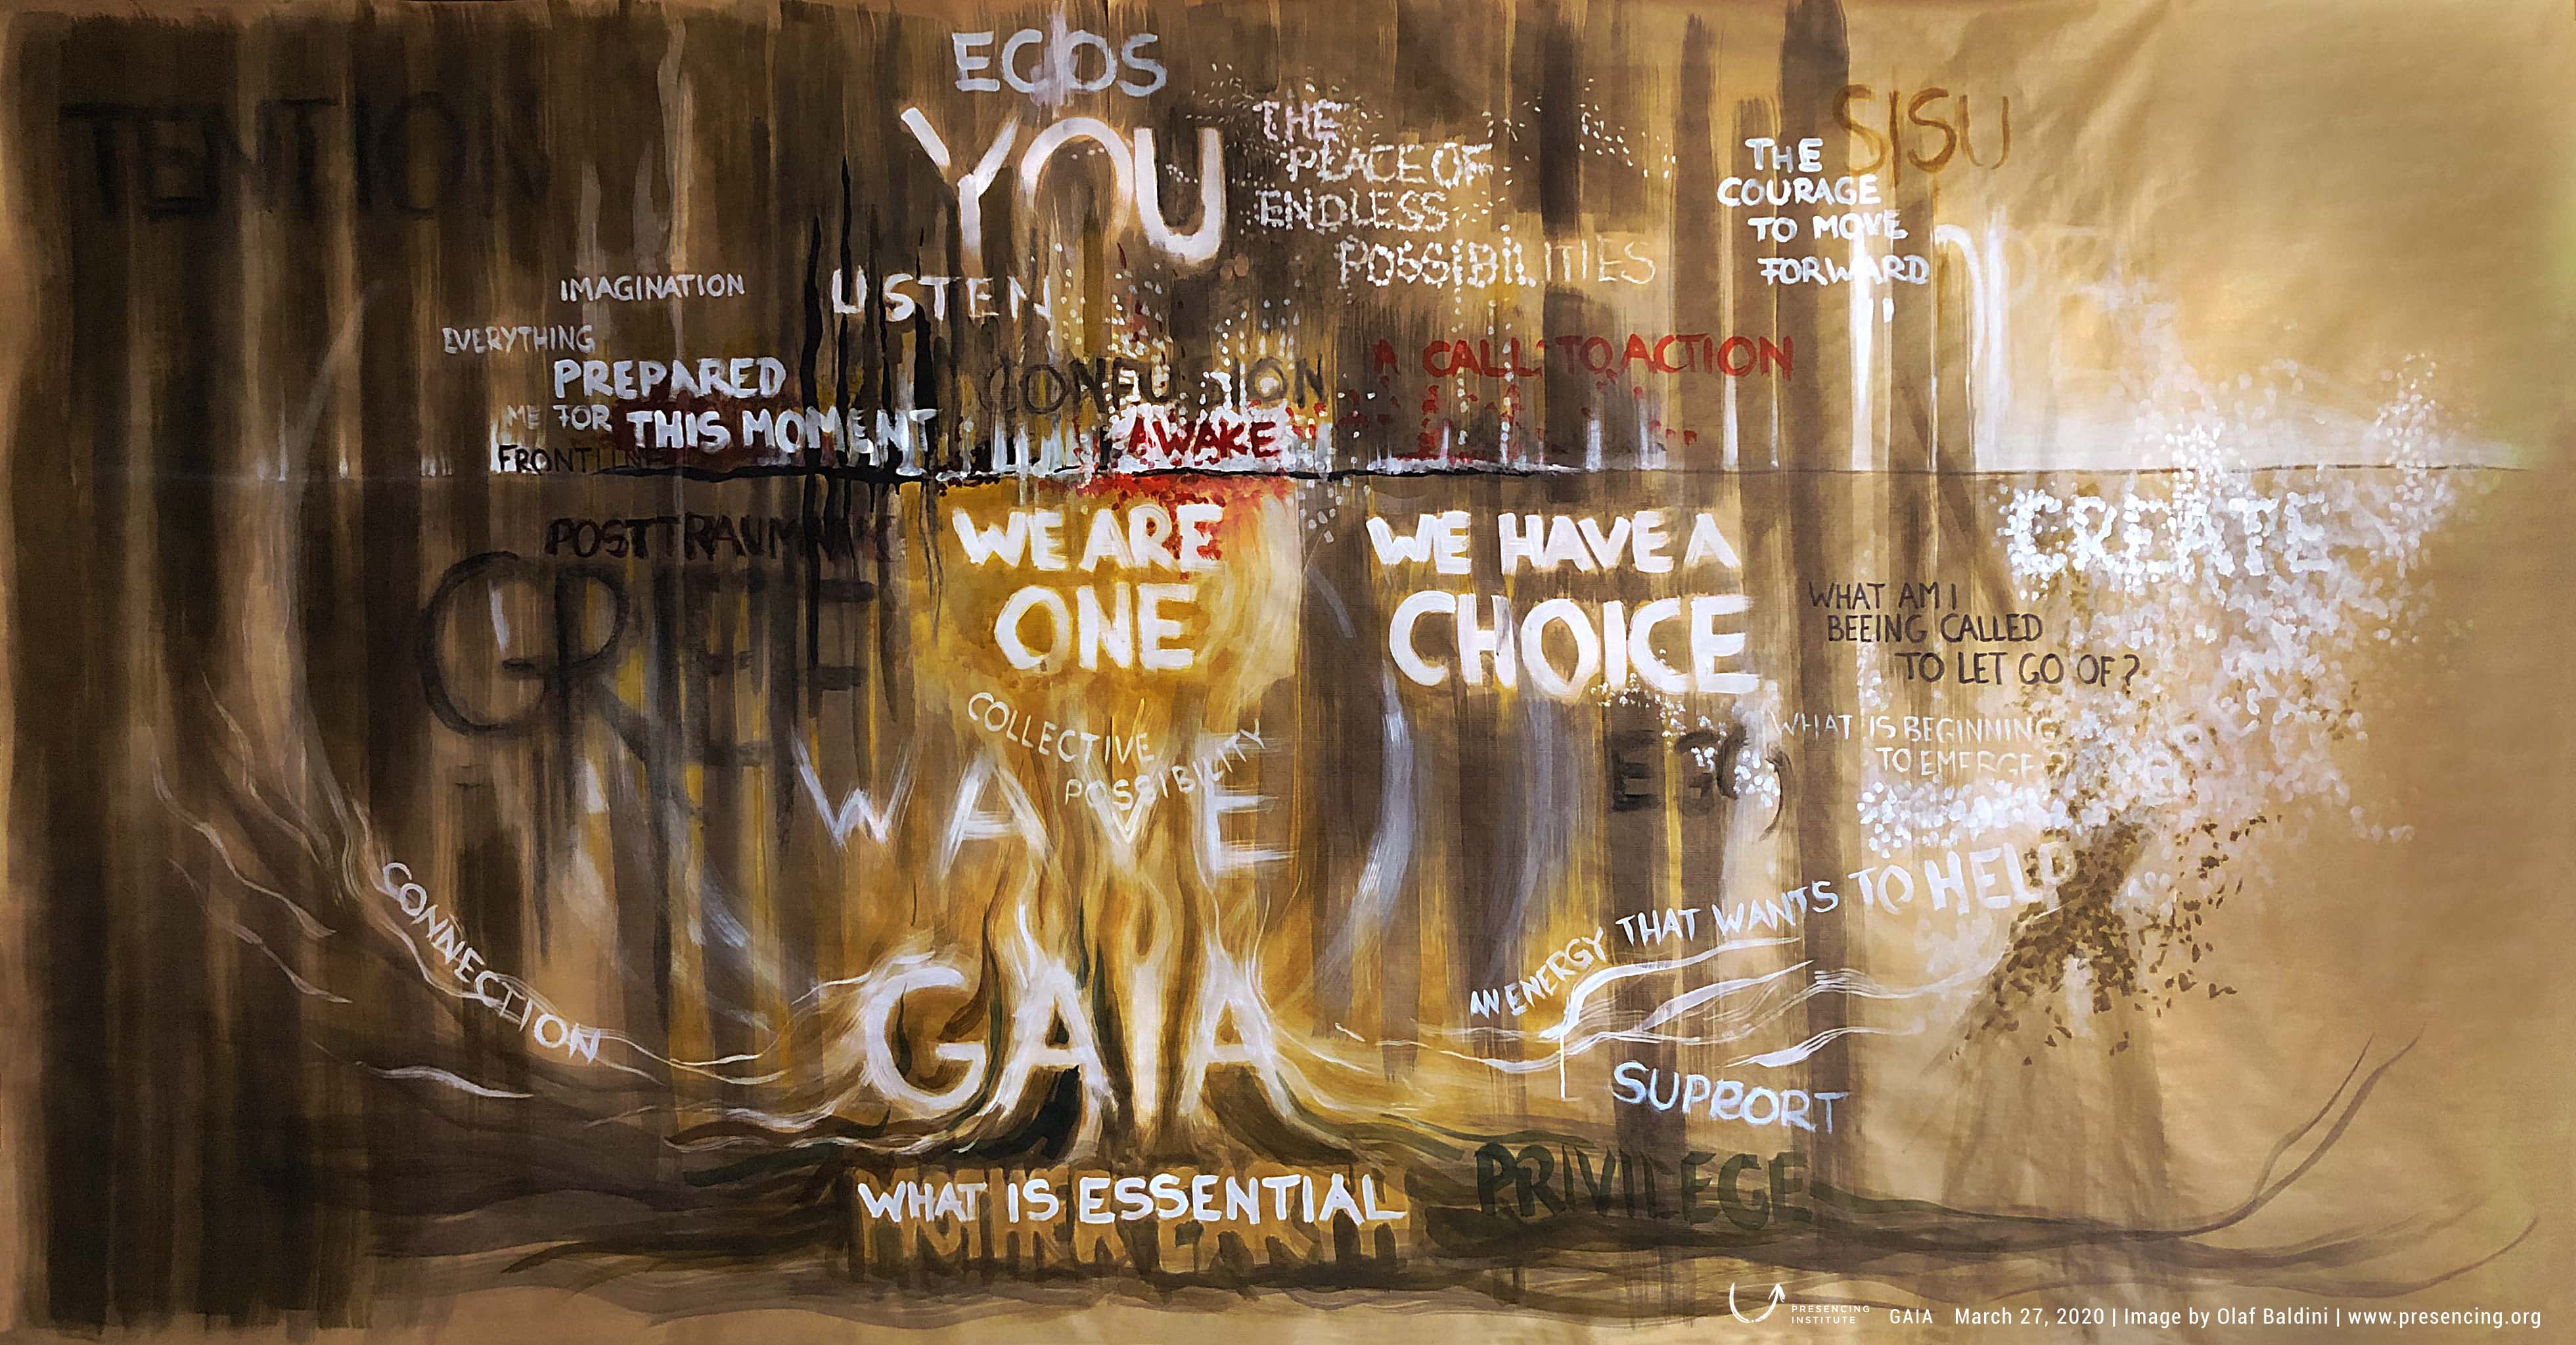 TENTION
EGOS
YOU
THE
PLACE OF
ENDLESS
POSSIBILITIES
SISU
THE
COURAGE
TO MOVE
FORWARD
IMAGINATION
LISTEN
EVERYTHING
PREPARED
ME FOR THIS MOMENT
FRONTLINE
CONFUSION
AWAKE
A CALL TO ACTION
POSTTRAUMATIC
GRIEF
WE ARE
ONE
WE HAVE A
CHOICE
CREATE
WHAT AM I
BEEING CALLED
TO LET GO OF?
COLLECTIVE
POSSIBILITY
WAVE
EGO
WHAT IS BEGINNING
TO EMERGE?
CONNECTION
AN ENERGY THAT WANTS TO HELP
GAIA
SUPPORT
PRIVILEGE
WHAT IS ESSENTIAL
MOTHER EARTH
PRESENCING
INSTITUTE
GAIA March 27, 2020 | Image by Olaf Baldini | www.presencing.org